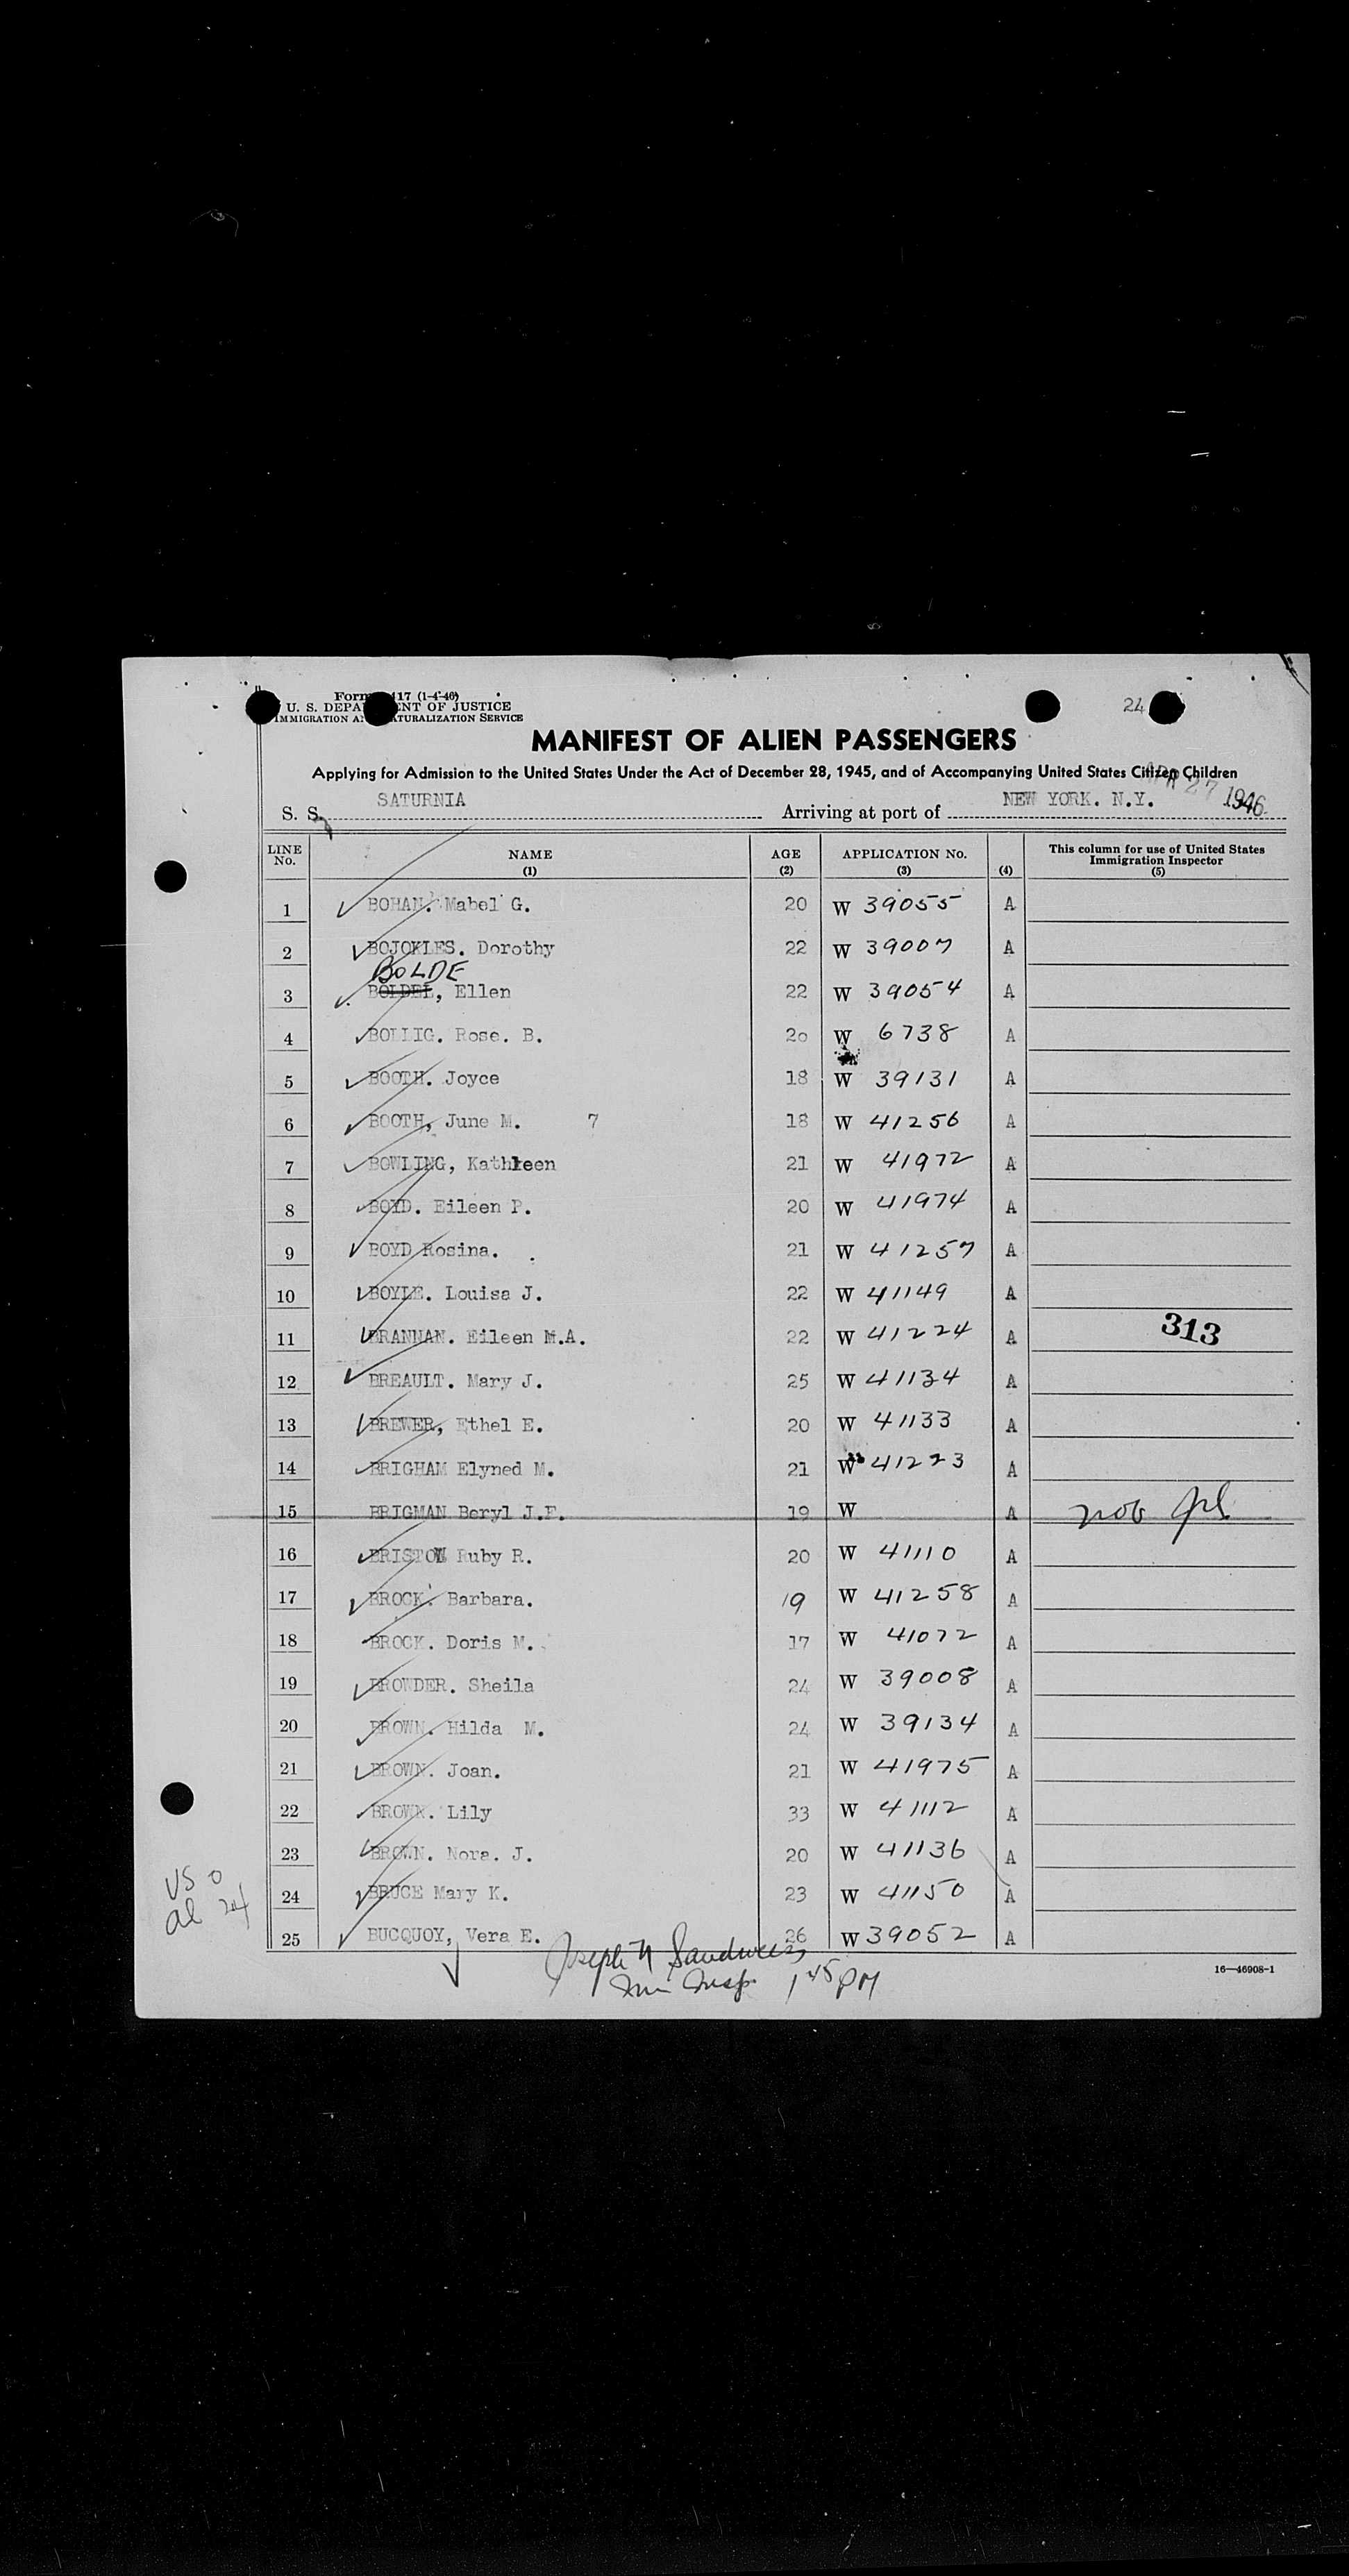 Form 417 (1-4-46)
U. S. DEPARTMENT OF JUSTICE
IMMIGRATION AND NATURALIZATION SERVICE
24
MANIFEST OF ALIEN PASSENGERS
Applying for Admission to the United States Under the Act of December 28, 1945, and of Accompanying United States Citizen Children
S. S. SATURNIA Arriving at port of NEW YORK. N.Y. APR 27 1946
LINE No. NAME (1) AGE (2) APPLICATION No. (3) (4) This column for use of United States Immigration Inspector (5)
1 BOHAN. Mabel G. 20 W 39055 A
2 BOJOKLES. Dorothy 22 W 39007 A
BOLDE
3 BOLDEL, Ellen 22 W 39054 A
4 BOLLIG. Rose. B. 20 W 6738 A
5 BOOTH. Joyce 18 W 39131 A
6 BOOTH, June M. 7 18 W 41256 A
7 BOWLING, Kathleen 21 W 41972 A
8 BOYD. Eileen P. 20 W 41974 A
9 BOYD Rosina. 21 W 41257 A
10 BOYLE. Louisa J. 22 W 41149 A
11 BRANNAN. Eileen M.A. 22 W 41224 A 313
12 BREAULT. Mary J. 25 W 41134 A
13 BREWER, Ethel E. 20 W 41133 A
14 BRIGHAM Elyned M. 21 W 41223 A
15 BRIGMAN Beryl J.F. 19 W A
16 BRISTOW Ruby R. 20 W 41110 A
17 BROCK. Barbara. 19 W 41258 A
18 BROCK. Doris M. 17 W 41072 A
19 BROWDER. Sheila 24 W 39008 A
20 BROWN. Hilda M. 24 W 39134 A
21 BROWN. Joan. 21 W 41975 A
22 BROWN. Lily 33 W 41112 A
23 BROWN. Nora. J. 20 W 41136 A
24 BRUCE Mary K. 23 W 41150 A
25 BUCQUOY, Vera E. 26 W 39052 A
US 0
al 24
Joseph
Imm Insp 1 45 PM
16—46908-1